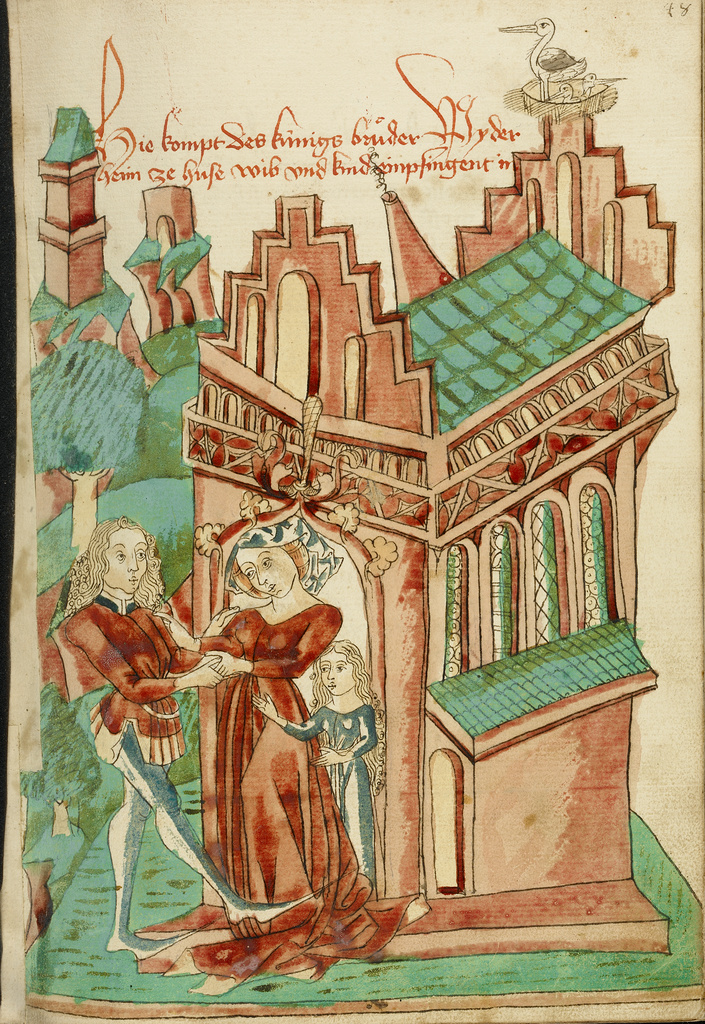 48
Hie kompt des künigs brůder Wyder
heim ze huse wib vnd kind empfingent in